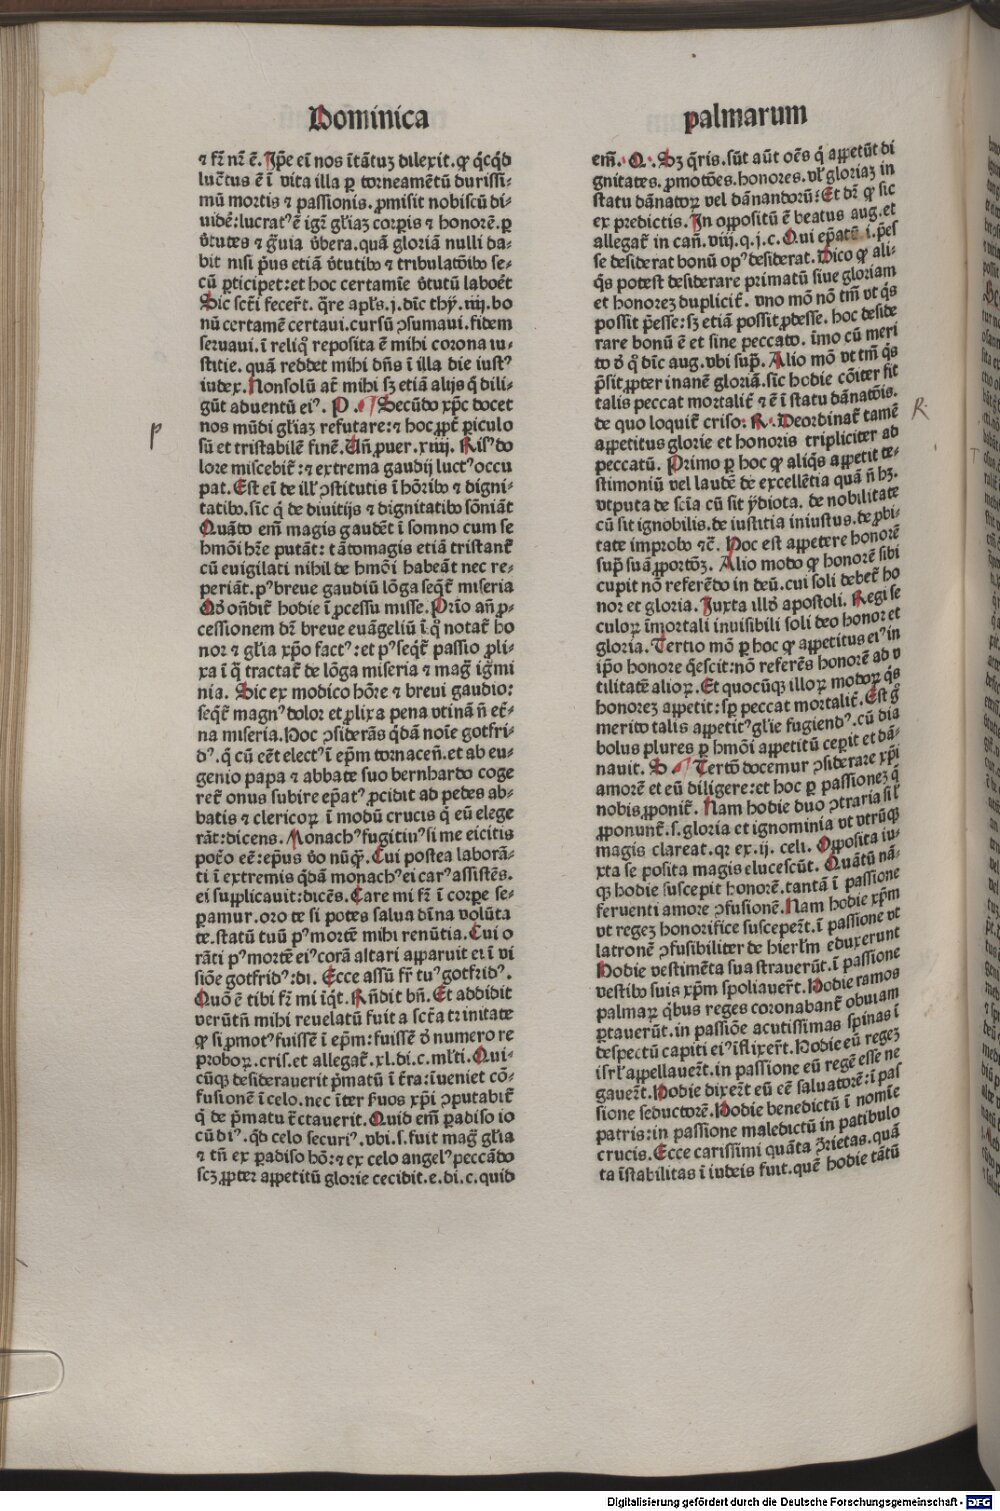 Dominica
palmarum
⁊ fr̄ nr̄ ē. Jp̄e eī nos ītātuʒ dilexit. ꝙ q̇cq̇d
luc̄tus ē ī vita illa ꝑ torneamētū durissi-
mū mortis ⁊ passionis. ꝓmisit nobiscū di-
uidē: lucratꝰ ē igr̄ gl̄iaʒ corꝑis ⁊ honorē. ꝑ
v̄tutes ⁊ v̄bera. quā gloriā nulli da-
bit nisi pͥus etiā v̄tutibꝰ ⁊ tribulatōibꝰ se-
cū ꝑticipet: et hoc certamīe v̄tutū laboēt
Sic sct̄i fecer̄t. q̄re apl̄s. j. dīc thy̌. iiij. bo
nū certamē certaui. cursū ꝯsumaui. fidem
seruaui. ī reliq̊ reposita ē mihi corona iu-
stitie. quā reddet mihi dn̄s ī illa die iustꝰ
iudex. Nonsolū at̄ mihi sʒ etiā alijs q̇ dili-
gūt aduentū eiꝰ. P. ¶ Secūdo xp̄c docet
nos mūdi gl̄iaʒ refutare: ⁊ hoc ꝓpt̄ ꝑiculo
sū et tristabilē finē. Un̄ ꝓuer. xiiij. Risꝰ do
lore miscebit̄: ⁊ extrema gaudij luctꝰ occu
pat. Est eī de ill̓ ꝯstitutis ī hōribꝰ ⁊ digni-
tatibꝰ. sīc q̇ de diuitijs ⁊ dignitatibꝰ sōniāt
Quāto em̄ magis gaudēt ī somno cum se
hmōi hr̄e putāt: tātomagis etiā tristant̄
cū euigilati nihil de hmōi habeāt nec re-
periāt. pꝰ breue gaudiū lōga seq̄t̄ miseria
Qd̓ on̄dit̄ hodie ī ꝓcessu misse. Prīo an̄ ꝓ-
cessionem dr̄ breue euāgeliū ī q̊ notat̄ ho
nor ⁊ gl̄ia xp̄o factꝰ: et pꝰ seq̄t̄ passio ꝓli-
xa ī q̊ tractat̄ de lōga miseria ⁊ mag̊ ig̊mi
nia. Sic ex modico hōre ⁊ breui gaudio:
seq̄t̄ magnꝰ dolor et ꝓlixa pena vtinā n̄ et̄-
na miseria. Hoc ꝯsiderās q̇dā noīe gotfri-
dꝰ. q̇ cū eēt electꝰ ī ep̄m tornacen̄. et ab eu-
genio papa ⁊ abbate suo bernhardo coge
ret̄ onus subire ep̄atꝰ ꝓcidit ad pedes ab-
batis ⁊ clericoꝝ ī modū crucis q̇ eū elege
rāt: dicens. Monachꝰ fugitiuꝰ si me eicitis
pot̄o eē: ep̄us v̓o nūq̄ꝫ. Cui postea laborā-
ti ī extremis q̇dā monachꝰ ei carꝰ assistēs.
ei supplicauit: dicēs. Care mi fr̄ ī corꝑe se-
ꝑamur. oro te si potes salua dīna volūta
te. statū tuū pꝰ mortē mihi renūtia. Cui o
rāti pꝰ mortē eiꝰ corā altari apparuit ei ī vi
siōe gotfridꝰ: di. Ecce assū fr̄ tuꝰ gotfridꝰ.
Quō ē tibi fr̄ mi īq̇t. Rn̄dit bn̄. Et addidit
verūtn̄ mihi reuelatū fuit a sct̄a trinitate
ꝙ si ꝓmotꝰ fuissē ī ep̄m: fuissē d̓ numero re
proboꝝ. cris. et allegat̄. xl. di. c. ml̄ti. Qui-
cūqꝫ desiderauerit pͥmatū ī t̄ra: īueniet cō-
fusionē ī celo. nec īter s̄uos xp̄i ꝯputabit̄
q̇ de pͥmatu t̄ctauerit. Quid em̄ ꝑadiso io
cūdiꝰ. qd̓ celo securiꝰ. vbi. s. fuit mag̊ gl̄ia
⁊ tn̄ ex ꝑadiso hō: ⁊ ex celo angelꝰ peccādo
scʒ ꝓpter appetitū glorie cecidit. e. di. c. quid
p
em̄. Q. Sʒ q̄ris. sūt aūt oēs q̇ appetūt di
gnitates. ꝓmotōes. honores. vl̓ gloriaʒ in
statu dānatoꝝ vel dānandoꝝ: Et dr̄ ꝙ sic
ex predictis. Jn oppositū ē beatus aug. et
allegat̄ in can̄. viij. q. j. c. Qui ep̄atū. i. p̄es
se desiderat bonū opꝰ desiderat. Dico ꝙ ali-
q̇s potest desiderare primatū siue gloriam
et honoreʒ duplicit̄. vno mō nō tm̄ vt q̇s
possit p̄esse: sʒ etiā possit ꝓdesse. hoc deside
rare bonū ē et sine peccato. īmo cū meri
to d̓ q̊ dīc aug. vbi supͣ. Alio mō vt tm̄ q̇s
p̄sit ꝓpter inanē gloriā. sic hodie cōiter fit
talis peccat mortalit̄ ⁊ ē ī statu dānatōis.
de quo loquit̄ criso: R. Deordinat̄ tamē
appetitus glorie et honoris tripliciter ad
peccatū. Primo ꝑ hoc ꝙ aliq̇s appetit te-
stimoniū vel laudē de excellētia quā n̄ hʒ.
vtputa de scīa cū sit ydiota. de nobilitate
cū sit ignobilis. de iustitia iniustus. de ꝓbi-
tate improbꝰ ⁊c̄. Hoc est appetere honorē
supͣ suā ꝓportōʒ. Alio modo ꝙ honorē sibi
cupit nō referēdo in deū. cui soli debet̄ ho
nor et gloria. Juxta illd̓ apostoli. Regi se
culoꝝ īmortali inuisibili soli deo honor et
gloria. Tertio mō ꝑ hoc ꝙ appetitus eiꝰ in
ip̄o honore q̇escit: nō referēs honorē ad v
tilitatē alioꝝ. Et quocūqꝫ illoꝝ modoꝝ q̇s
honoreʒ appetit: sꝑ peccat mortalit̄. Est g̊
merito talis appetitꝰ gl̄ie fugiendꝰ. cū dia
bolus plures ꝑ hmōi appetitū cepit et dā-
nauit. S. ¶ Tertō docemur ꝯsiderare xp̄i
amorē et eū diligere: et hoc ꝑ passioneʒ q̄
nobis ꝓponit̄. Nam hodie duo ꝯtraria sil̓
ꝓponunt̄. s. gloria et ignominia vt vtrūqꝫ
magis clareat. qꝛ ex. ij. celi. Opposita iu-
xta se posita magis elucescūt. Quātū nā-
qꝫ hodie suscepit honorē. tantā ī passione
feruenti amore ꝯfusionē. Nam hodie xp̄m
vt regeʒ honorifice susceper̄t. ī passione vt
latronē ꝯfusibiliter de hierl̄m eduxerunt
Hodie vestimēta sua strauerūt. ī passione
vestibꝰ suis xp̄m spoliauer̄t. Hodie ramos
palmaꝝ q̇bus reges coronabant̄ obuiam
ꝑtauerūt. in passiōe acutissimas spinas ī
despectū capiti eiꝰ īflixer̄t. Hodie eū regeʒ
isrl̄ appellauer̄t. in passione eū regē esse ne
gauer̄t. Hodie dixer̄t eū eē saluatorē: ī pas
sione seductorē. Hodie benedictū ī nomīe
patris: in passione maledictū in patibulo
crucis. Ecce carissimi quāta ꝯrietas. quā
ta īstabilitas ī iudeis fuit. quē hodie tātū
R.
Digitalisierung gefördert durch die Deutsche Forschungsgemeinschaft - DFG